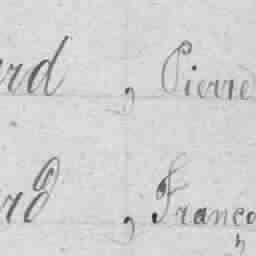 rd, Pierre
rd, Franço